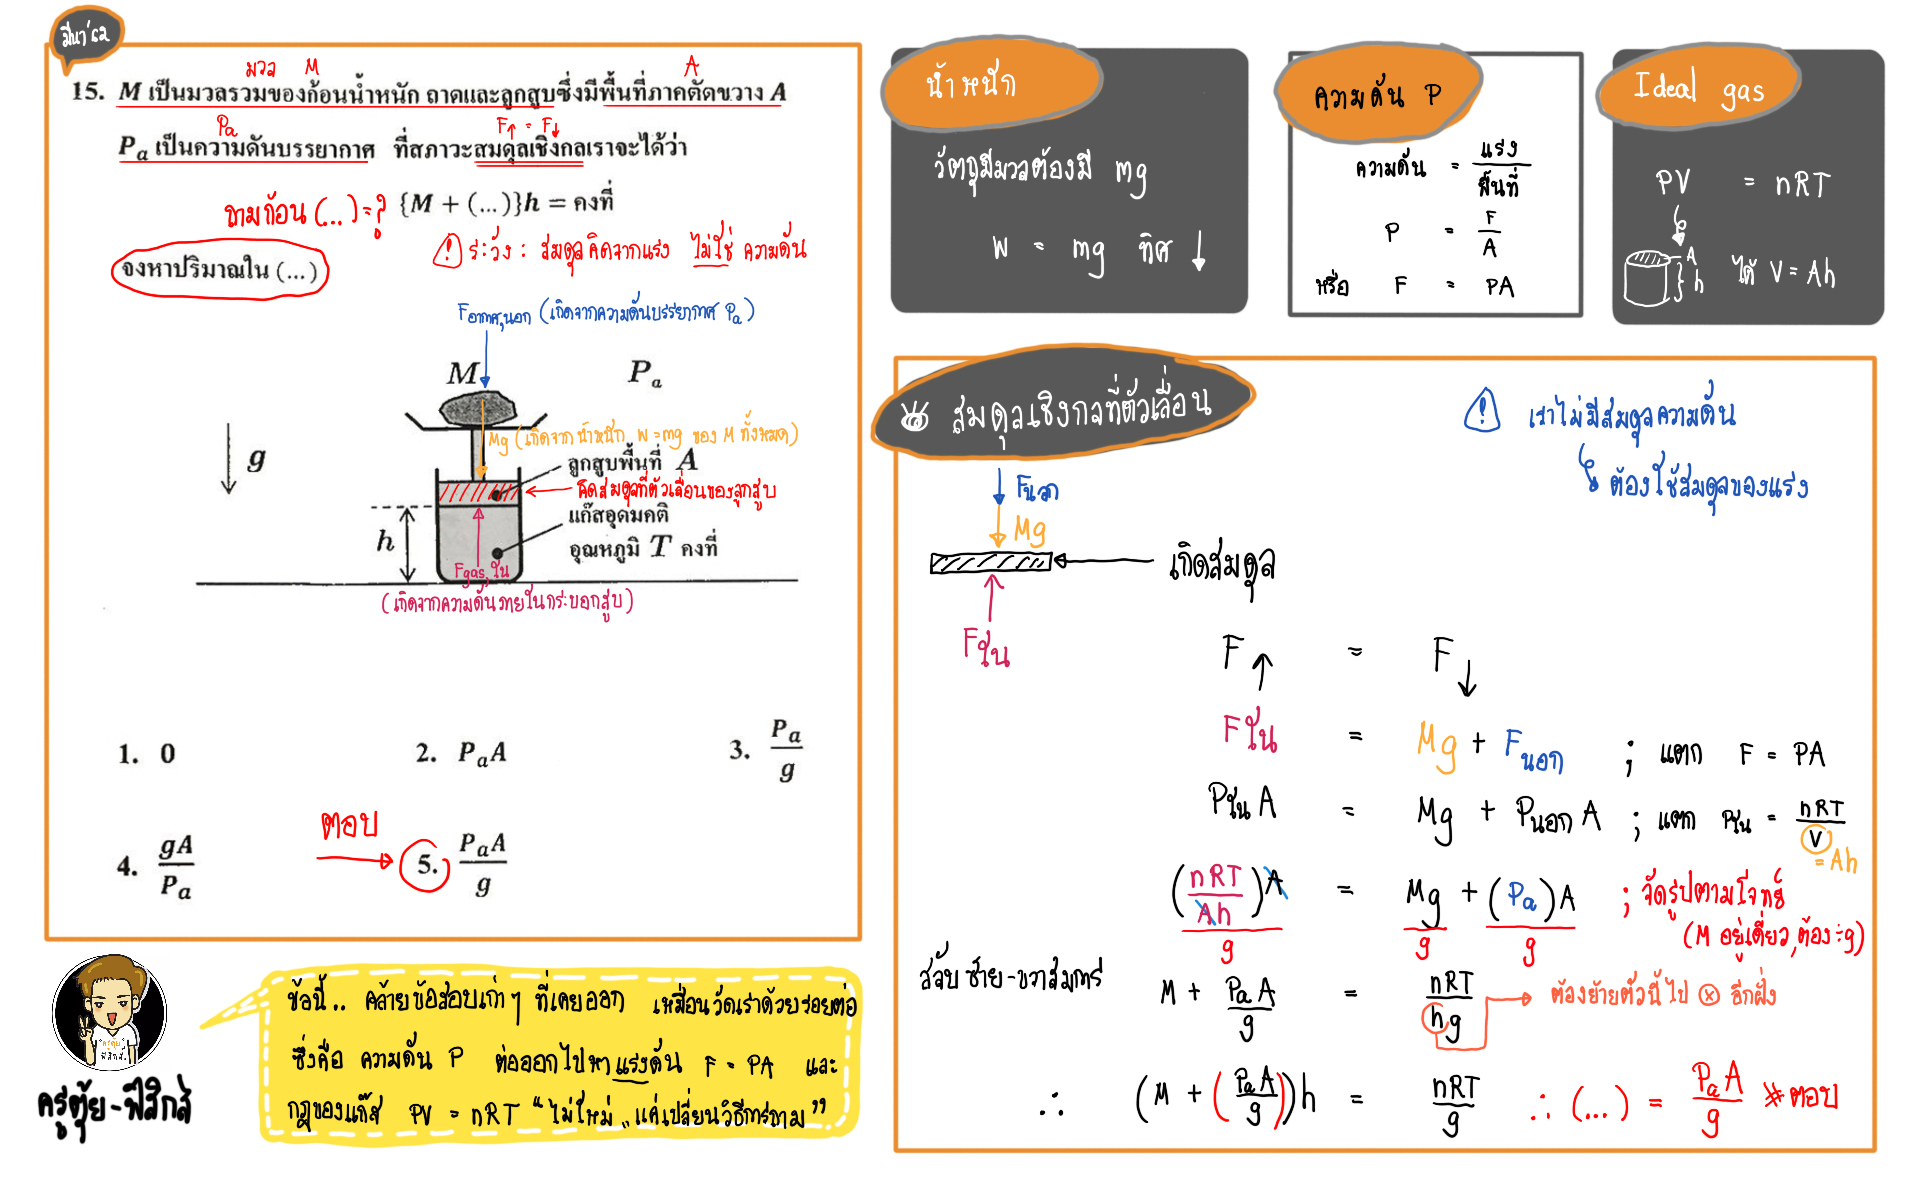 มีนา'62
มวล M A
15. M เป็นมวลรวมของก้อนน้ำหนัก ถาดและลูกสูบซึ่งมีพื้นที่ภาคตัดขวาง A
Pa F↑ = F↓
Pa เป็นความดันบรรยากาศ ที่สภาวะสมดุลเชิงกลเราจะได้ว่า
ถามก้อน (...) = ? {M + (...)}h = คงที่
! ระวัง : สมดุลคิดจากแรง ไม่ใช่ ความดัน
จงหาปริมาณใน (...)
Fอากาศ,นอก (เกิดจากความดันบรรยากาศ Pa)
M Pa
Mg (เกิดจากน้ำหนัก W=mg ของ M ทั้งหมด)
g
ลูกสูบพื้นที่ A
คิดสมดุลที่ตัวเลื่อนของลูกสูบ
แก๊สอุดมคติ
h
อุณหภูมิ T คงที่
Fgas,ใน
(เกิดจากความดันภายในกระบอกสูบ)
1. 0 2. PaA 3. Pa/g
ตอบ
4. gA/Pa 5. PaA/g
น้ำหนัก
วัตถุมีมวลต้องมี mg
W = mg ทิศ ↓
ความดัน P
ความดัน = แรง/พื้นที่
P = F/A
หรือ F = PA
Ideal gas
PV = nRT
A
h ได้ V = Ah
สมดุลเชิงกลที่ตัวเลื่อน
! เราไม่มีสมดุลความดัน
ต้องใช้สมดุลของแรง
Fนอก
Mg
เกิดสมดุล
Fใน
F↑ = F↓
Fใน = Mg + Fนอก ; แตก F = PA
Pใน A = Mg + Pนอก A ; แตก Pใน = nRT/V
= Ah
(nRT/Ah)A/g = Mg/g + (Pa)A/g ; จัดรูปตามโจทย์
(M อยู่เดี่ยว, ต้อง ÷g)
สลับ ซ้าย-ขวาสมการ
M + PaA/g = nRT/hg → ต้องย้ายตัวนี้ไป ⊗ อีกฝั่ง
∴ (M + (PaA/g))h = nRT/g ∴ (...) = PaA/g # ตอบ
ข้อนี้.. คล้ายข้อสอบเก่า ๆ ที่เคยออก เหมือนวัดเราด้วยรอยต่อ
ซึ่งคือ ความดัน P ต่อออกไปหา แรงดัน F = PA และ
กฎของแก๊ส PV = nRT "ไม่ใหม่ แค่เปลี่ยนวิธีการถาม"
ครูตุ้ย
ฟิสิกส์
ครูตุ้ย-ฟิสิกส์